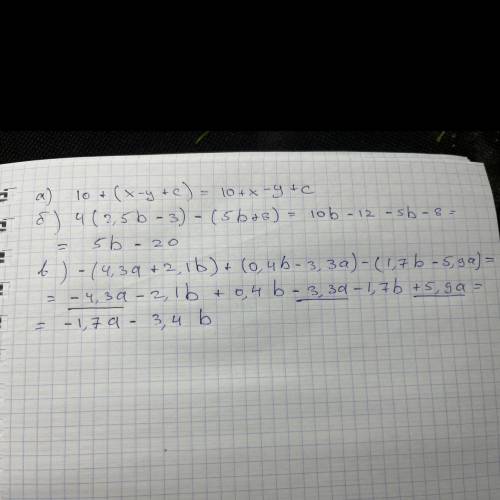 а) 10 + (x-y+c) = 10+x-y+c
б) 4(2,5b-3)-(5b+8) = 10b-12-5b-8=
= 5b-20
в) -(4,3a+2,1b)+(0,4b-3,3a)-(1,7b-5,9a)=
= -4,3a-2,1b+0,4b-3,3a-1,7b+5,9a=
= -1,7a-3,4b